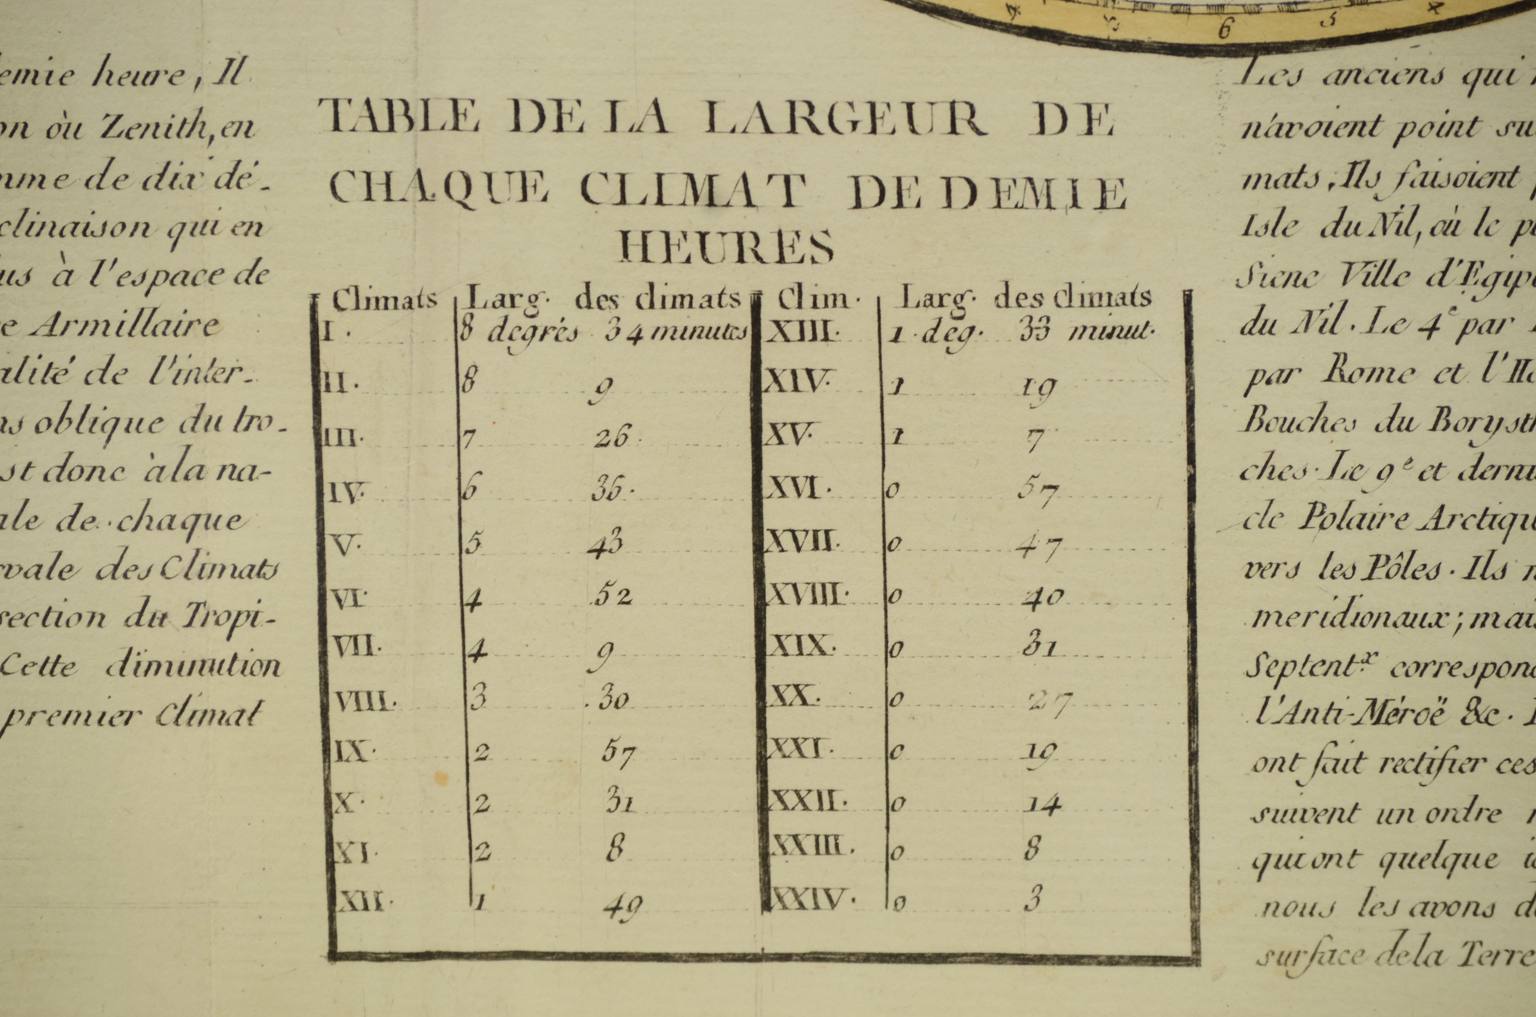 6 5
heure, Il
où Zenith, en
de dix dé-
qui en
à l'espace de
Armillaire
de l'inter-
oblique du tro-
donc à la na-
de chaque
des Climats
du Tropi-
Cette diminution
premier Climat
TABLE DE LA LARGEUR DE
CHAQUE CLIMAT DE DEMIE
HEURES
Climats Larg. des climats Clim. Larg. des climats
I. 8 degrés 34 minutes XIII. 1 deg. 33 minut.
II. 8 9 XIV. 1 19
III. 7 26 XV. 1 7
IV. 6 36. XVI. 0 57
V. 5 43 XVII. 0 47
VI. 4 52 XVIII. 0 40
VII. 4 9 XIX. 0 31
VIII. 3 30 XX. 0 27
IX. 2 57 XXI. 0 19
X. 2 31 XXII. 0 14
XI. 2 8 XXIII. 0 8
XII. 1 49 XXIV. 0 3
Les anciens qui
n'avoient point
mats, Ils faisoient
Isle du Nil, où le
Siene Ville
du Nil. Le 4e par
par Rome et
Bouches du
ches. Le 9e et
cle Polaire
vers les Pôles. Ils
meridionaux; mais
Septent.x
l'Anti-Méroë &c.
ont fait rectifier ces
suivent un ordre
qui ont quelque
nous les avons
surface de la Terre